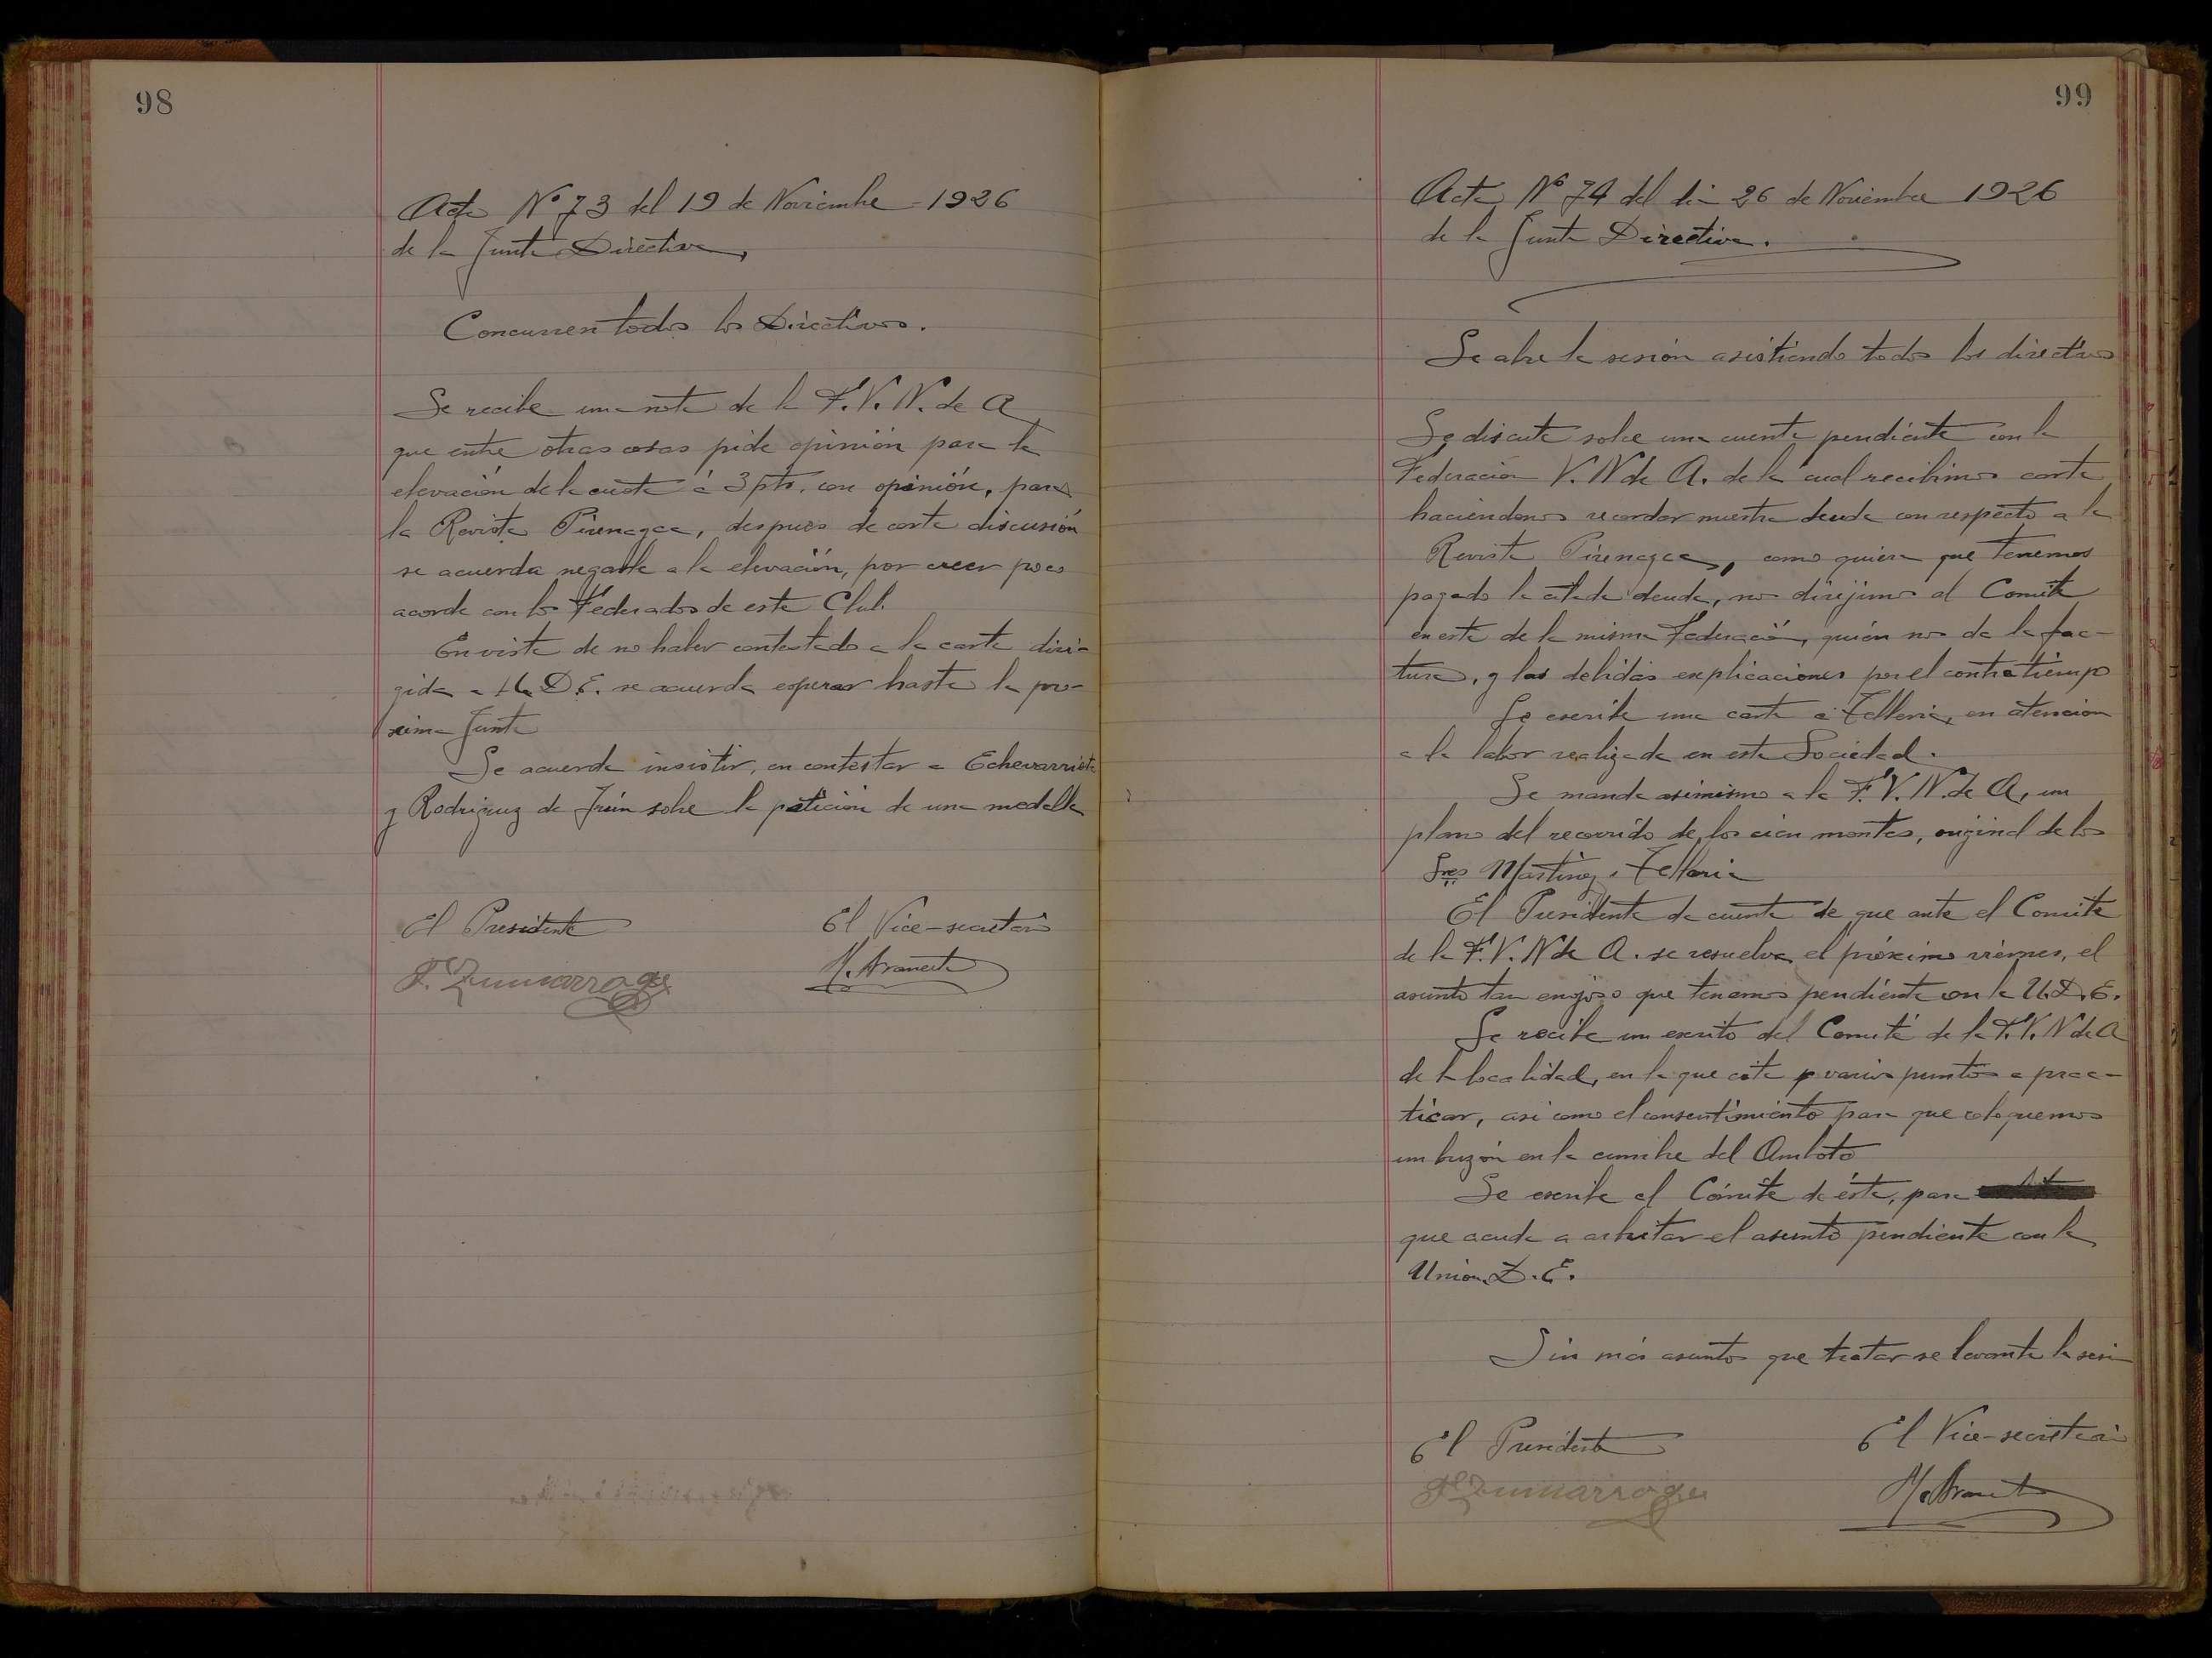 98
Acta Nº 73 del 19 de Noviembre - 1926
de la Junta Directiva,
Concurren todos los Directivos.
Se recibe una nota de la F. V. N. de A
que entre otras cosas pide opinión para la
elevación de la cuota á 3 pts. con opinión, para
la Revista Pirenayca, despues de corta discusión
se acuerda negarle a la elevación, por creer poco
acorde con los Federados de este Club.
En vista de no haber contestado a la carta diri-
gida a U. D. E. se acuerda esperar hasta la pro-
xima Junta
Se acuerda insistir, en contestar a Echevarrieta
y Rodriguez de Irún sobre la petición de una medalla
El Presidente El Vice-secretario
F. Zumarraga
99
Acta Nº 74 del dia 26 de Noviembre 1926
de la Junta Directiva.
Se abre la sesión asistiendo todos los directivos
Se discute sobre una cuenta pendiente con la
Federación V. N de A. de la cual recibimos carta
haciendonos recordar nuestra deuda con respecto a la
Revista Pirenayca, como quiera que tenemos
pagado la citada deuda, nos dirijimos al Comité
en esta de la misma Federación, quién nos da la fac-
tura, y las debidas explicaciones por el contratiempo
Se escribe una carta a Telleria, en atención
a la labor realizada en esta Sociedad.
Se manda asimismo a la F. V. N. de A, un
plano del recorrido de los cien montes, original de los
Sres Martinez y Telleria
El Presidente da cuenta de que ante el Comité
de la F. V. N de A. se resuelva el próximo viérnes, el
asunto tan enojoso que tenemos pendiente con la U. D. E.
Se recibe un escrito del Comité de la F. V. N de A
de la localidad, en la que cita varios puntos a prac-
ticar, asi como el consentimiento para que coloquemos
un buzón en la cumbre del Amboto
Se escribe al Cómite de ésta, para
que acuda a arbitar el asunto pendiente con la
Union D. E.
Sin más asuntos que tratar se levanta la sesi
El Presidente El Vice-secretario
F. Zumarraga